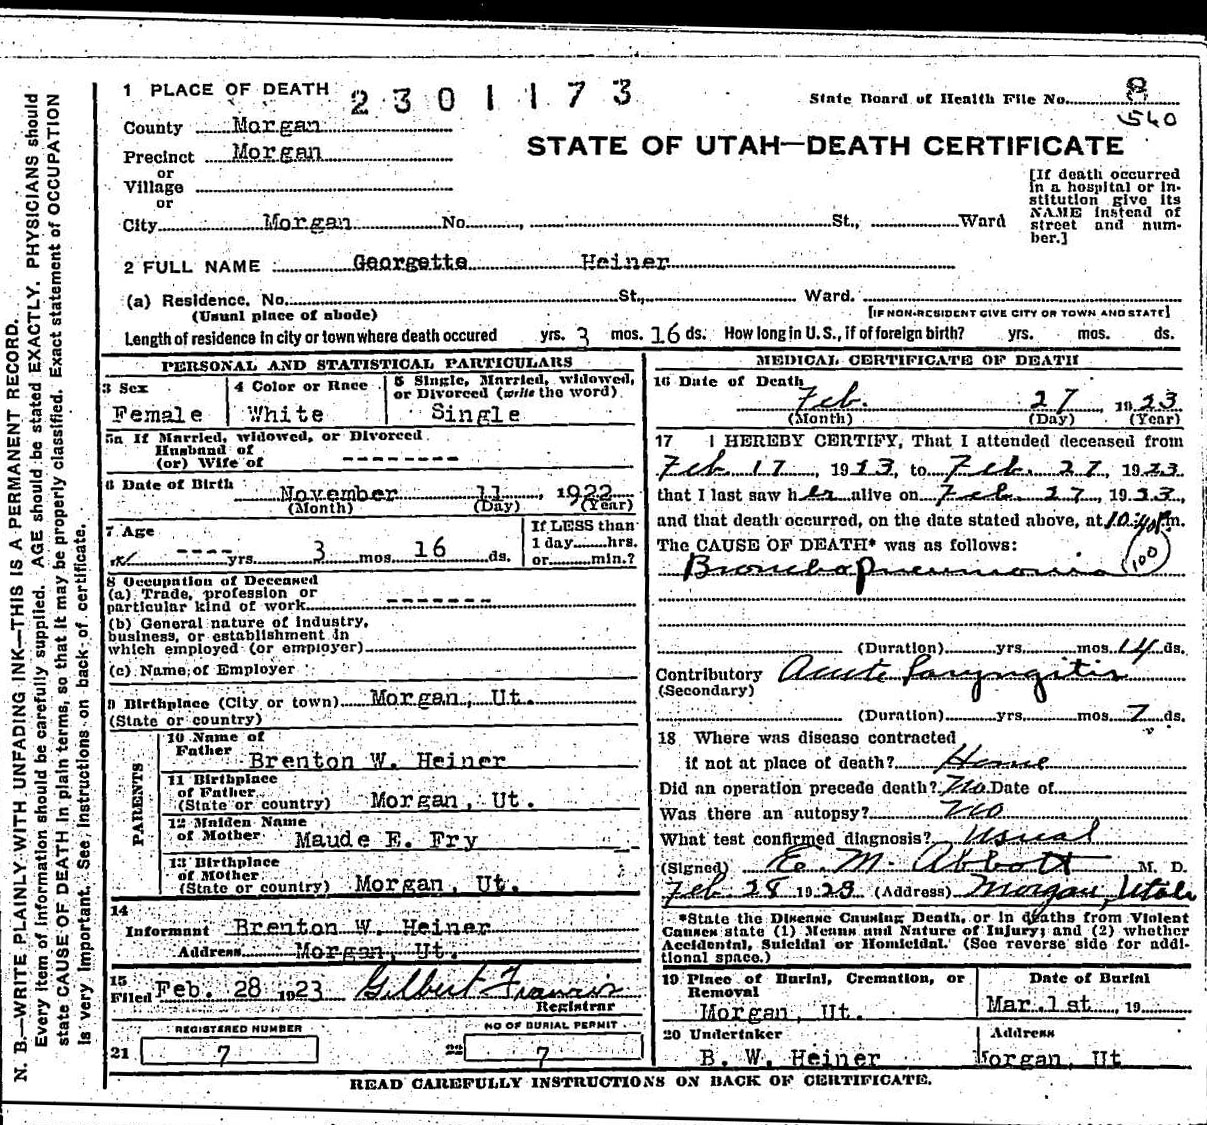 N. B.—WRITE PLAINLY WITH UNFADING INK—THIS IS A PERMANENT RECORD.
Every item of information should be carefully supplied. AGE should be stated EXACTLY. PHYSICIANS should
state CAUSE OF DEATH in plain terms, so that it may be properly classified. Exact statement of OCCUPATION
is very important. See instructions on back of certificate.
1 PLACE OF DEATH 2301173
State Board of Health File No. 8
540
County Morgan
STATE OF UTAH—DEATH CERTIFICATE
Precinct Morgan
or
Village
or
City Morgan No. , St., Ward
[If death occurred
in a hospital or in-
stitution give its
NAME instead of
street and num-
ber.]
2 FULL NAME Georgetta Heiner
(a) Residence, No. St., Ward.
(Usual place of abode)
[IF NON-RESIDENT GIVE CITY OR TOWN AND STATE]
Length of residence in city or town where death occured yrs. 3 mos. 16 ds. How long in U. S., if of foreign birth? yrs. mos. ds.
PERSONAL AND STATISTICAL PARTICULARS
3 Sex
Female
4 Color or Race
White
5 Single, Married, widowed,
or Divorced (write the word)
Single
5a If Married, widowed, or Divorced
Husband of
(or) Wife of --------
6 Date of Birth
November 11, 1922
(Month) (Day) (Year)
7 Age
---- yrs. 3 mos. 16 ds.
If LESS than
1 day hrs.
or min.?
8 Occupation of Deceased
(a) Trade, profession or
particular kind of work --------
(b) General nature of industry,
business, or establishment in
which employed (or employer)
(c) Name of Employer
9 Birthplace (City or town) Morgan, Ut.
(State or country)
PARENTS
10 Name of
Father Brenton W. Heiner
11 Birthplace
of Father
(State or country) Morgan, Ut.
12 Maiden Name
of Mother Maude E. Fry
13 Birthplace
of Mother
(State or country) Morgan, Ut.
14
Informant Brenton W. Heiner
Address Morgan, Ut.
15
Filed Feb. 28 1923 Gilbert Francis
Registrar
REGISTERED NUMBER
21 7
NO OF BURIAL PERMIT
22 7
MEDICAL CERTIFICATE OF DEATH
16 Date of Death
Feb. 27 1923
(Month) (Day) (Year)
17 I HEREBY CERTIFY, That I attended deceased from
Feb 17, 1923, to Feb. 27, 1923
that I last saw her alive on Feb. 27, 1923,
and that death occurred, on the date stated above, at 10:40 P.m.
The CAUSE OF DEATH* was as follows:
Broncho pneumonia (100)
(Duration) yrs. mos. 14 ds.
Contributory Acute Laryngitis
(Secondary)
(Duration) yrs. mos. 7 ds.
18 Where was disease contracted
if not at place of death? Home
Did an operation precede death? No. Date of
Was there an autopsy? No
What test confirmed diagnosis? Usual
(Signed) E. M. Abbott M. D.
Feb 28 1923 (Address) Morgan, Utah
*State the Disease Causing Death, or in deaths from Violent
Causes state (1) Means and Nature of Injury; and (2) whether
Accidental, Suicidal or Homicidal. (See reverse side for addi-
tional space.)
19 Place of Burial, Cremation, or
Removal
Morgan, Ut.
Date of Burial
Mar. 1st, 19
20 Undertaker
B. W. Heiner
Address
Morgan, Ut
READ CAREFULLY INSTRUCTIONS ON BACK OF CERTIFICATE.